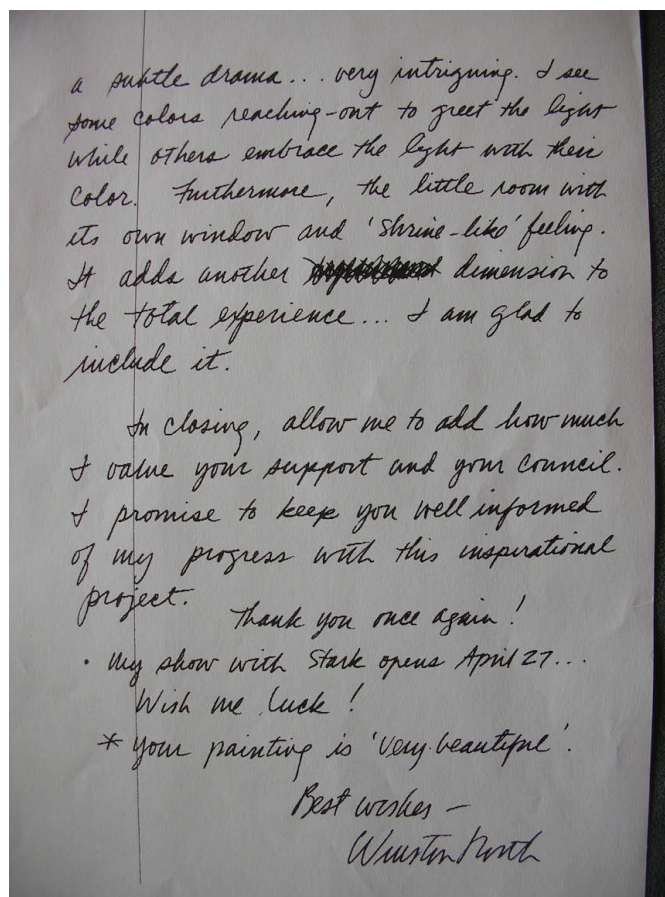 a subtle drama... very intriguing. I see
some colors reaching-out to greet the light
while others embrace the light with their
color. Furthermore, the little room with
its own window and 'shrine-like' feeling.
It adds another dimension to
the total experience... I am glad to
include it.
In closing, allow me to add how much
I value your support and your council.
I promise to keep you well informed
of my progress with this inspirational
project.
Thank you once again!
• My show with Stark opens April 27...
Wish me luck!
* your painting is 'very beautiful'.
Best wishes –
Winston